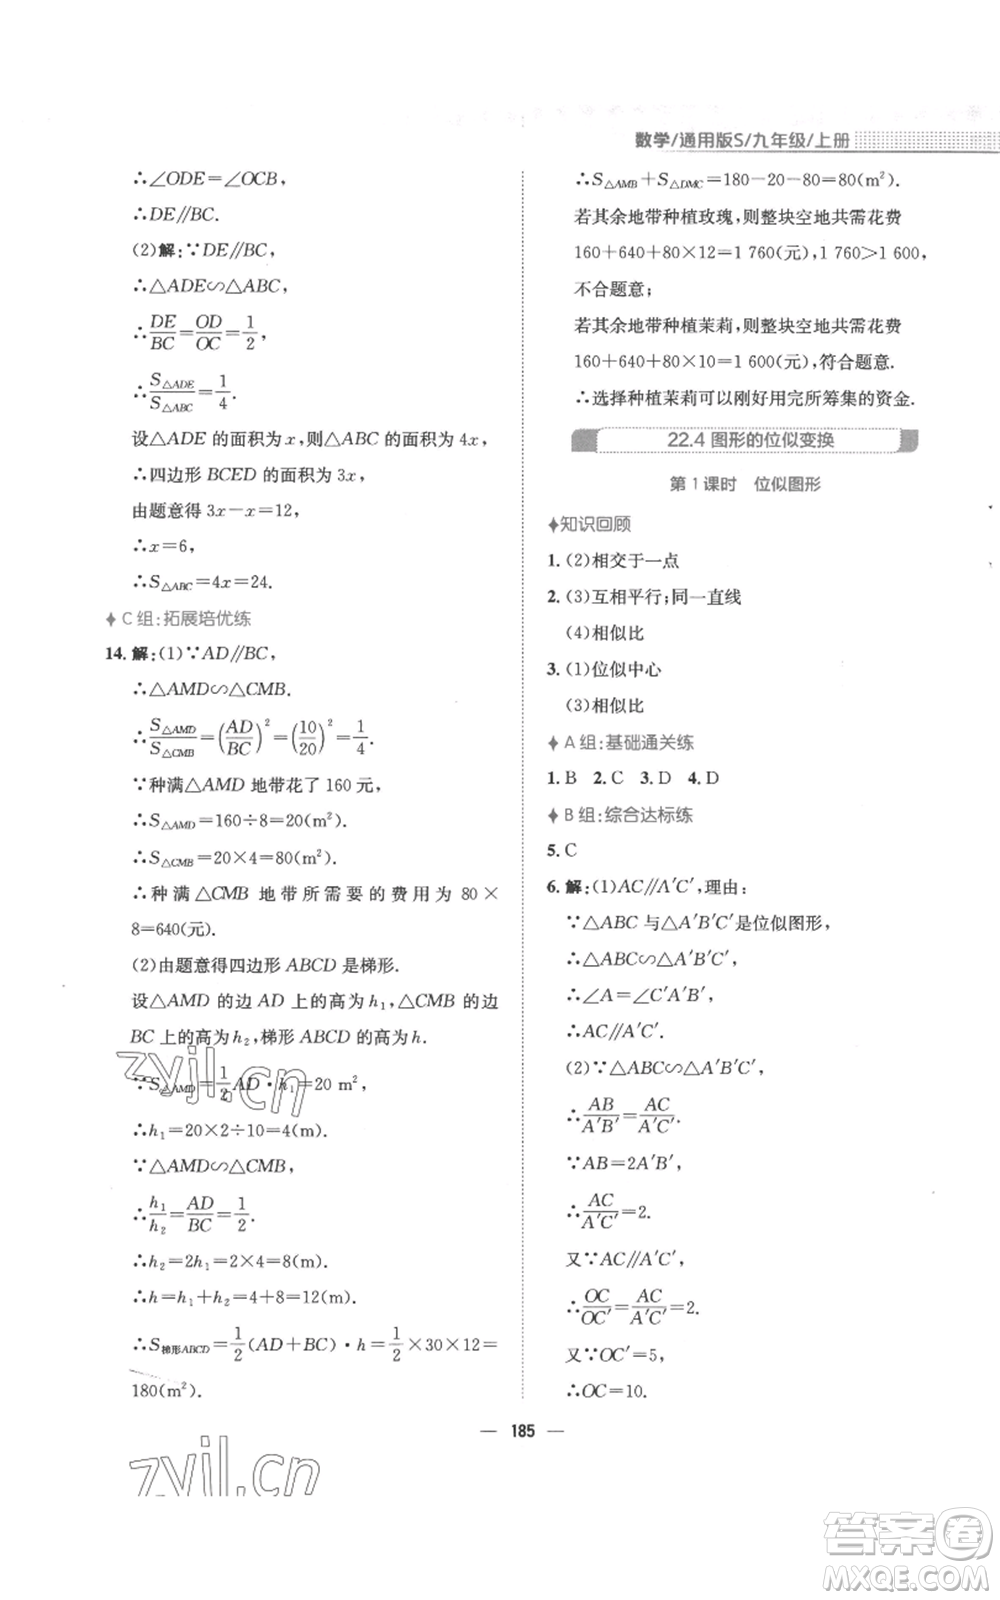 数学/通用版S/九年级/上册
∴∠ODE=∠OCB,
∴DE//BC.
(2)解:∵DE//BC,
∴△ADE∽△ABC,
∴DE/BC=OD/OC=1/2,
∴S△ADE/S△ABC=1/4.
设△ADE的面积为x,则△ABC的面积为4x,
∴四边形BCED的面积为3x,
由题意得3x-x=12,
∴x=6,
∴S△ABC=4x=24.
C组:拓展培优练
14.解:(1)∵AD//BC,
∴△AMD∽△CMB.
∴S△AMD/S△CMB=(AD/BC)²=(10/20)²=1/4.
∵种满△AMD地带花了160元,
∴S△AMD=160÷8=20(m²).
∴S△CMB=20×4=80(m²).
∴种满△CMB地带所需要的费用为80×
8=640(元).
(2)由题意得四边形ABCD是梯形.
设△AMD的边AD上的高为h₁,△CMB的边
BC上的高为h₂,梯形ABCD的高为h.
∵S△AMD=1/2AD·h₁=20 m²,
∴h₁=20×2÷10=4(m).
∵△AMD∽△CMB,
∴h₁/h₂=AD/BC=1/2.
∴h₂=2h₁=2×4=8(m).
∴h=h₁+h₂=4+8=12(m).
∴S梯形ABCD=1/2(AD+BC)·h=1/2×30×12=
180(m²).
∴S△AMB+S△DMC=180-20-80=80(m²).
若其余地带种植玫瑰,则整块空地共需花费
160+640+80×12=1 760(元),1 760>1 600,
不合题意;
若其余地带种植茉莉,则整块空地共需花费
160+640+80×10=1 600(元),符合题意.
∴选择种植茉莉可以刚好用完所筹集的资金.
22.4 图形的位似变换
第1课时 位似图形
知识回顾
1.(2)相交于一点
2.(3)互相平行;同一直线
(4)相似比
3.(1)位似中心
(3)相似比
A组:基础通关练
1.B 2.C 3.D 4.D
B组:综合达标练
5.C
6.解:(1)AC//A′C′,理由:
∵△ABC与△A′B′C′是位似图形,
∴△ABC∽△A′B′C′,
∴∠A=∠C′A′B′,
∴AC//A′C′.
(2)∵△ABC∽△A′B′C′,
∴AB/A′B′=AC/A′C′.
∵AB=2A′B′,
∴AC/A′C′=2.
又∵AC//A′C′,
∴OC/OC′=AC/A′C′=2.
又∵OC′=5,
∴OC=10.
— 185 —
zyjl.cn
zyjl.cn
答案卷
MXQE.COM